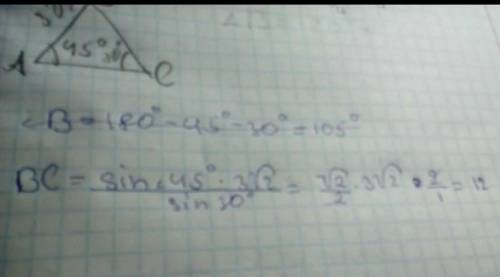 3√2
A 45° 30° C
∠B = 180° - 45° - 30° = 105°
BC = sin 45° · 3√2 / sin 30° = √2/2 · 3√2 · 2/1 = 12